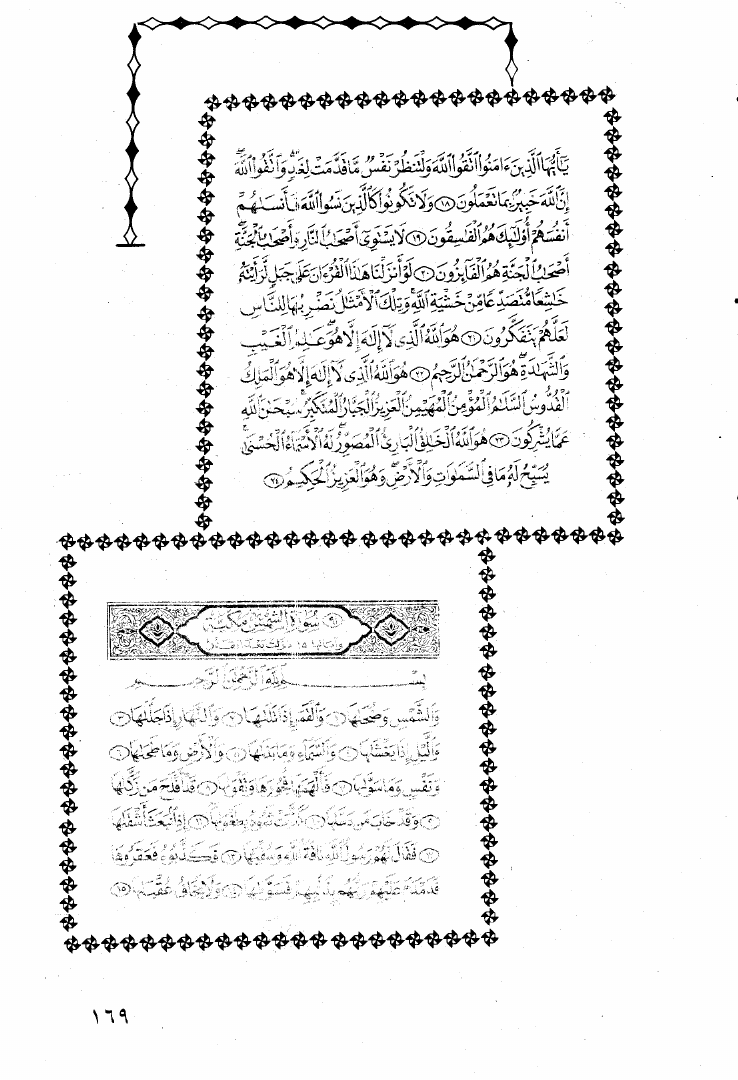 يَٰٓأَيُّهَا ٱلَّذِينَ ءَامَنُوا۟ ٱتَّقُوا۟ ٱللَّهَ وَلْتَنظُرْ نَفْسٌ مَّا قَدَّمَتْ لِغَدٍ وَٱتَّقُوا۟ ٱللَّهَ
إِنَّ ٱللَّهَ خَبِيرٌۢ بِمَا تَعْمَلُونَ ١٨ وَلَا تَكُونُوا۟ كَٱلَّذِينَ نَسُوا۟ ٱللَّهَ فَأَنسَىٰهُمْ
أَنفُسَهُمْ أُو۟لَٰٓئِكَ هُمُ ٱلْفَٰسِقُونَ ١٩ لَا يَسْتَوِىٓ أَصْحَٰبُ ٱلنَّارِ وَأَصْحَٰبُ ٱلْجَنَّةِ
أَصْحَٰبُ ٱلْجَنَّةِ هُمُ ٱلْفَآئِزُونَ ٢٠ لَوْ أَنزَلْنَا هَٰذَا ٱلْقُرْءَانَ عَلَىٰ جَبَلٍ لَّرَأَيْتَهُۥ
خَٰشِعًا مُّتَصَدِّعًا مِّنْ خَشْيَةِ ٱللَّهِ وَتِلْكَ ٱلْأَمْثَٰلُ نَضْرِبُهَا لِلنَّاسِ
لَعَلَّهُمْ يَتَفَكَّرُونَ ٢١ هُوَ ٱللَّهُ ٱلَّذِى لَآ إِلَٰهَ إِلَّا هُوَ عَٰلِمُ ٱلْغَيْبِ
وَٱلشَّهَٰدَةِ هُوَ ٱلرَّحْمَٰنُ ٱلرَّحِيمُ ٢٢ هُوَ ٱللَّهُ ٱلَّذِى لَآ إِلَٰهَ إِلَّا هُوَ ٱلْمَلِكُ
ٱلْقُدُّوسُ ٱلسَّلَٰمُ ٱلْمُؤْمِنُ ٱلْمُهَيْمِنُ ٱلْعَزِيزُ ٱلْجَبَّارُ ٱلْمُتَكَبِّرُ سُبْحَٰنَ ٱللَّهِ
عَمَّا يُشْرِكُونَ ٢٣ هُوَ ٱللَّهُ ٱلْخَٰلِقُ ٱلْبَارِئُ ٱلْمُصَوِّرُ لَهُ ٱلْأَسْمَآءُ ٱلْحُسْنَىٰ
يُسَبِّحُ لَهُۥ مَا فِى ٱلسَّمَٰوَٰتِ وَٱلْأَرْضِ وَهُوَ ٱلْعَزِيزُ ٱلْحَكِيمُ ٢٤
سُورَةُ الشَّمْسِ مَكِّيَّة
بِسْمِ ٱللَّهِ ٱلرَّحْمَٰنِ ٱلرَّحِيمِ
وَٱلشَّمْسِ وَضُحَىٰهَا ١ وَٱلْقَمَرِ إِذَا تَلَىٰهَا ٢ وَٱلنَّهَارِ إِذَا جَلَّىٰهَا ٣
وَٱلَّيْلِ إِذَا يَغْشَىٰهَا ٤ وَٱلسَّمَآءِ وَمَا بَنَىٰهَا ٥ وَٱلْأَرْضِ وَمَا طَحَىٰهَا ٦
وَنَفْسٍ وَمَا سَوَّىٰهَا ٧ فَأَلْهَمَهَا فُجُورَهَا وَتَقْوَىٰهَا ٨ قَدْ أَفْلَحَ مَن زَكَّىٰهَا
٩ وَقَدْ خَابَ مَن دَسَّىٰهَا ١٠ كَذَّبَتْ ثَمُودُ بِطَغْوَىٰهَآ ١١ إِذِ ٱنۢبَعَثَ أَشْقَىٰهَا
١٢ فَقَالَ لَهُمْ رَسُولُ ٱللَّهِ نَاقَةَ ٱللَّهِ وَسُقْيَٰهَا ١٣ فَكَذَّبُوهُ فَعَقَرُوهَا
فَدَمْدَمَ عَلَيْهِمْ رَبُّهُم بِذَنۢبِهِمْ فَسَوَّىٰهَا ١٤ وَلَا يَخَافُ عُقْبَٰهَا ١٥
١٦٩